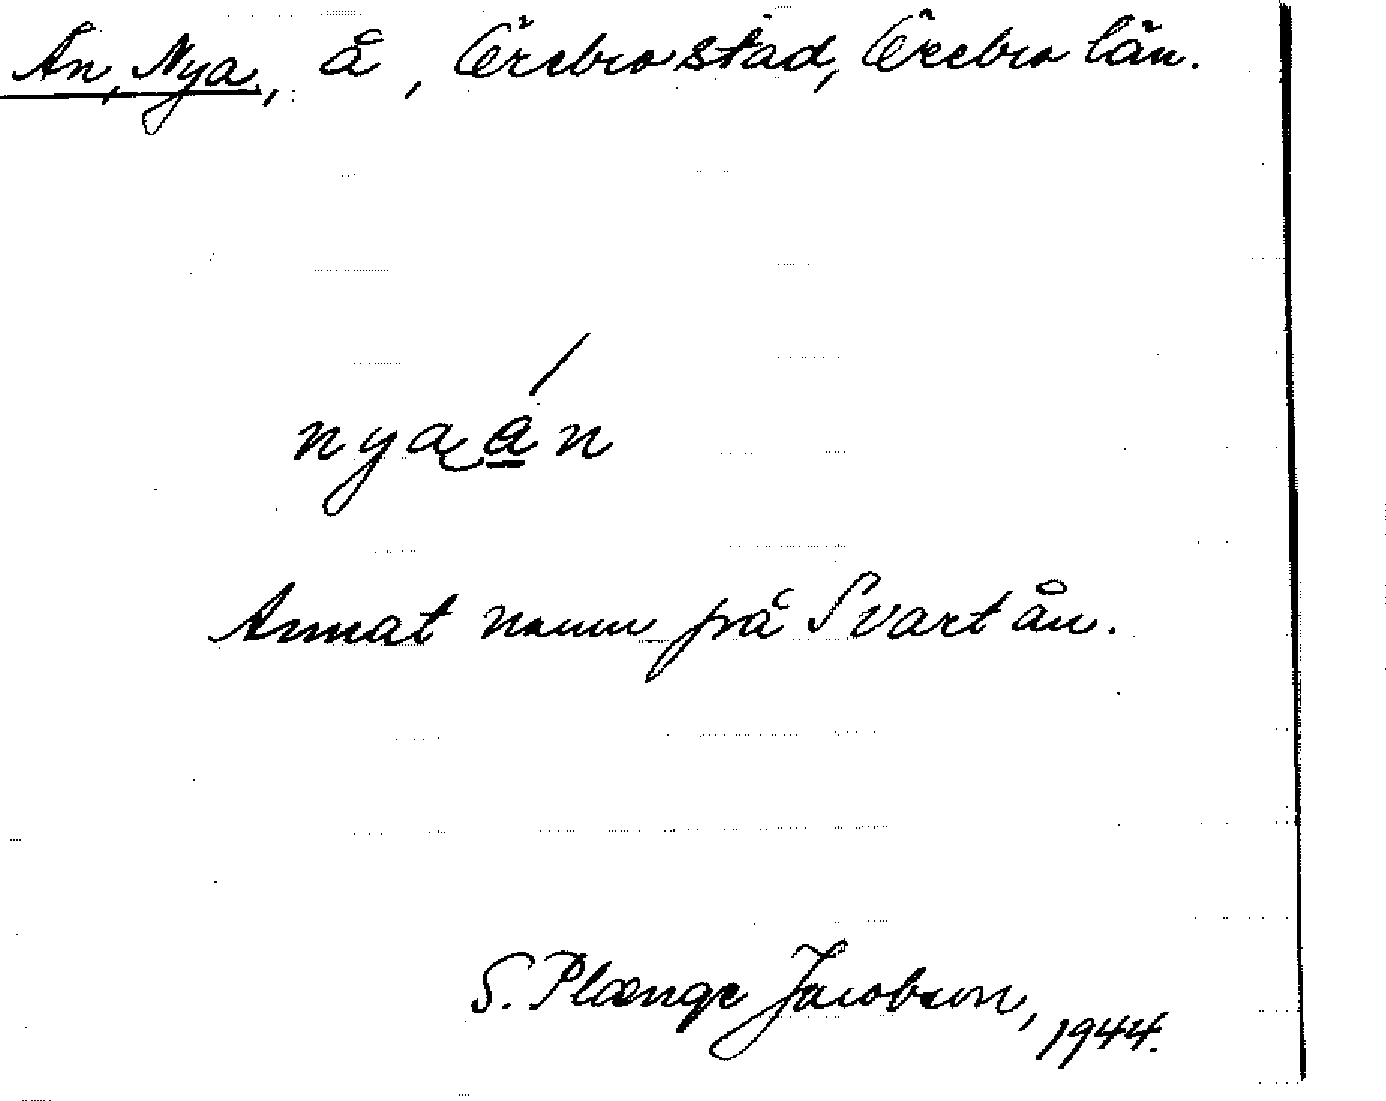 Ån, Nya, å, Örebro stad, Örebro län.
nya ån
Annat namn på Svartån.
S. Plænge Jacobson, 1944.